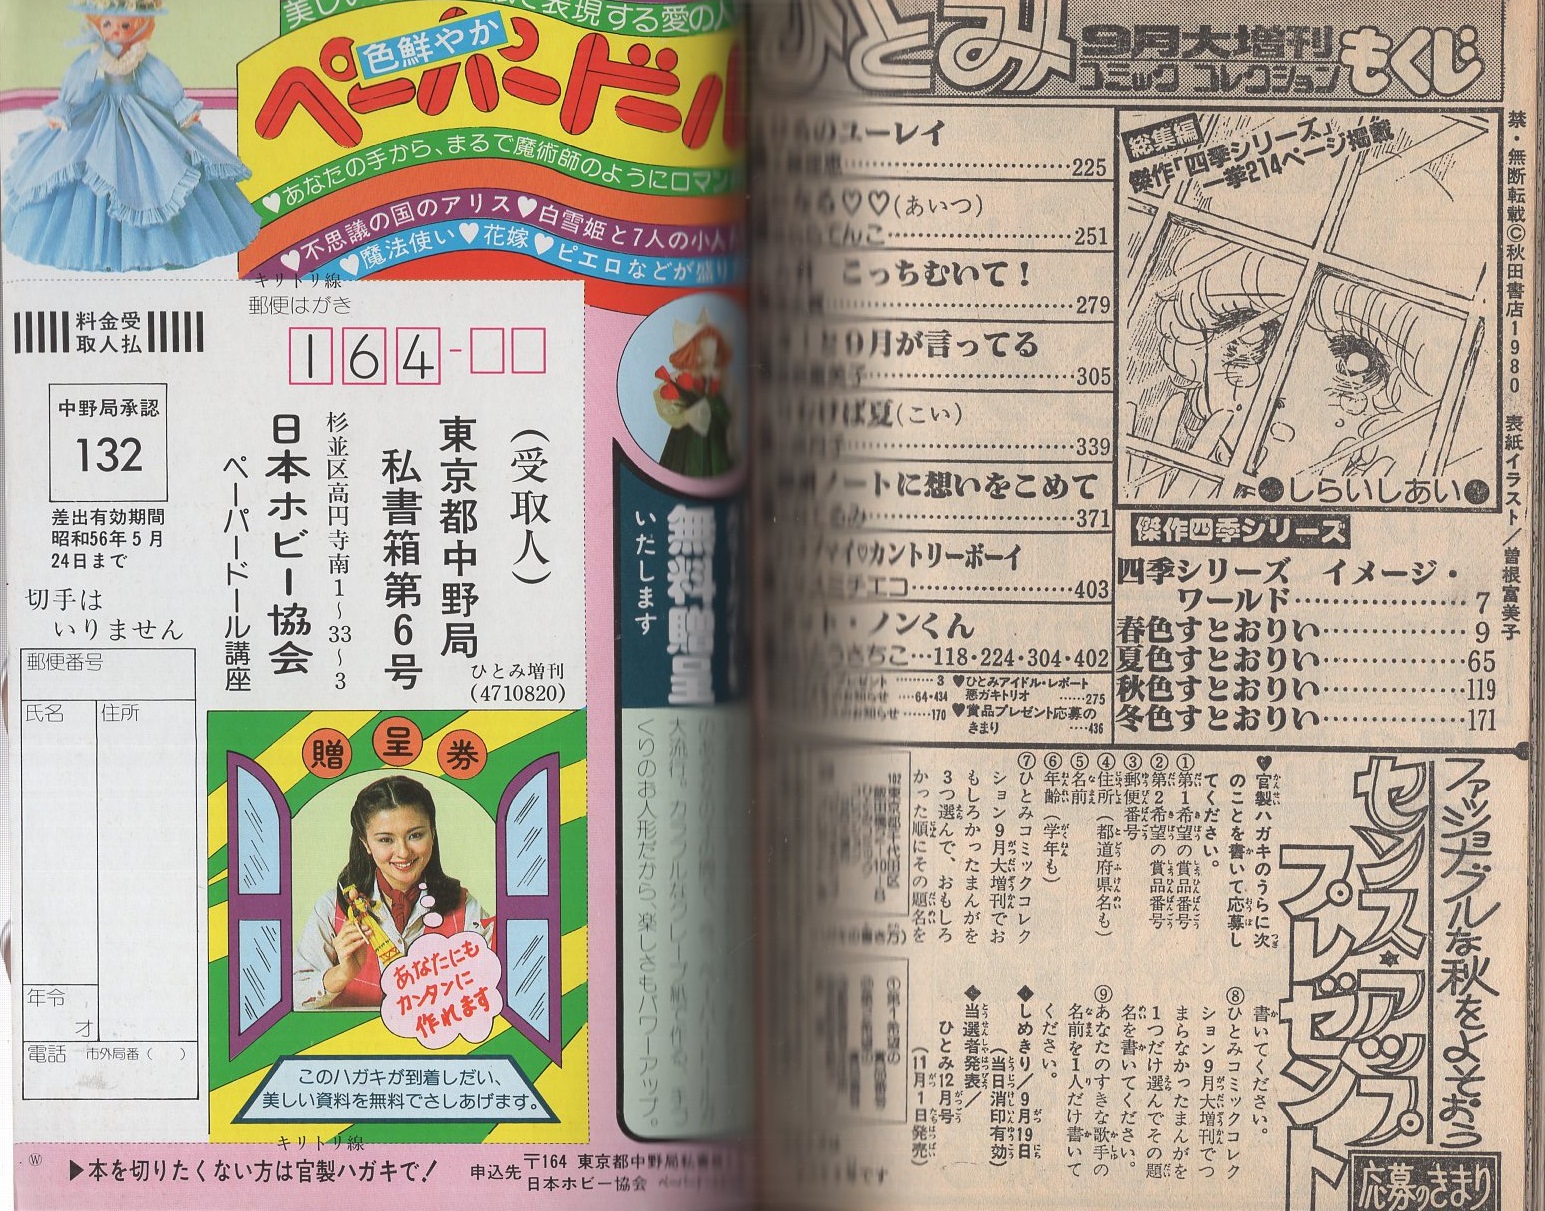 美しい
表現する愛の人
色鮮やか
ペーパードール
♥あなたの手から、まるで魔術師のようにロマン
♥不思議の国のアリス♥白雪姫と7人の小人
♥魔法使い♥花嫁♥ピエロなどが盛り
キリトリ線
郵便はがき
料金受
取人払
164-
中野局承認
132
差出有効期間
昭和56年5月
24日まで
切手は
いりません
(受取人)
東京都中野局
私書箱第6号
杉並区高円寺南1〜33〜3
日本ホビー協会
ペーパードール講座
ひとみ増刊
(4710820)
郵便番号
氏名
住所
年令
才
電話 市外局番( )
贈呈券
あなたにも
カンタンに
作れます
このハガキが到着しだい、
美しい資料を無料でさしあげます。
キリトリ線
無料贈呈
いたします
大流行。カラフルなクレープ紙で作る、手づ
くりのお人形だから、楽しさもパワーアップ。
Ⓦ
▶本を切りたくない方は官製ハガキで!
申込先
〒164 東京都中野局私書箱
日本ホビー協会
ひとみ
9月大増刊
コミック コレクション
もくじ
のユーレイ
225
♡♡(あいつ)
てんこ 251
こっちむいて!
279
9月が言ってる
305
ば夏(こい)
339
ノートに想いをこめて
るみ 371
マイ♡カントリーボーイ
ミチエコ 403
ト・ノンくん
うさちこ…118・224・304・402
3
64・434
170
♥ひとみアイドル・レポート
悪ガキトリオ ……275
♥賞品プレゼント応募の
きまり …436
総集編
傑作「四季シリーズ」
一挙214ページ掲載
●しらいしあい●
傑作四季シリーズ
四季シリーズ イメージ・
ワールド 7
春色すとおりい 9
夏色すとおりい 65
秋色すとおりい 119
冬色すとおりい 171
禁・無断転載©秋田書店1980 表紙イラスト/曽根富美子
ファッショナブルな秋をよそおう
センス☆アップ
プレゼント
応募のきまり
♥官製ハガキのうらに次
のことを書いて応募し
てください。
①第1希望の賞品番号
②第2希望の賞品番号
③郵便番号
④住所(都道府県名も)
⑤名前
⑥年齢(学年も)
⑦ひとみコミックコレク
ション9月大増刊でお
もしろかったまんがを
3つ選んで、おもしろ
かった順にその題名を
書いてください。
⑧ひとみコミックコレク
ション9月大増刊でつ
まらなかったまんがを
1つだけ選んでその題
名を書いてください。
⑨あなたのすきな歌手の
名前を1人だけ書いて
ください。
◆しめきり/9月19日
(当日消印有効)
◆当選者発表/
ひとみ12月号
(11月1日発売)